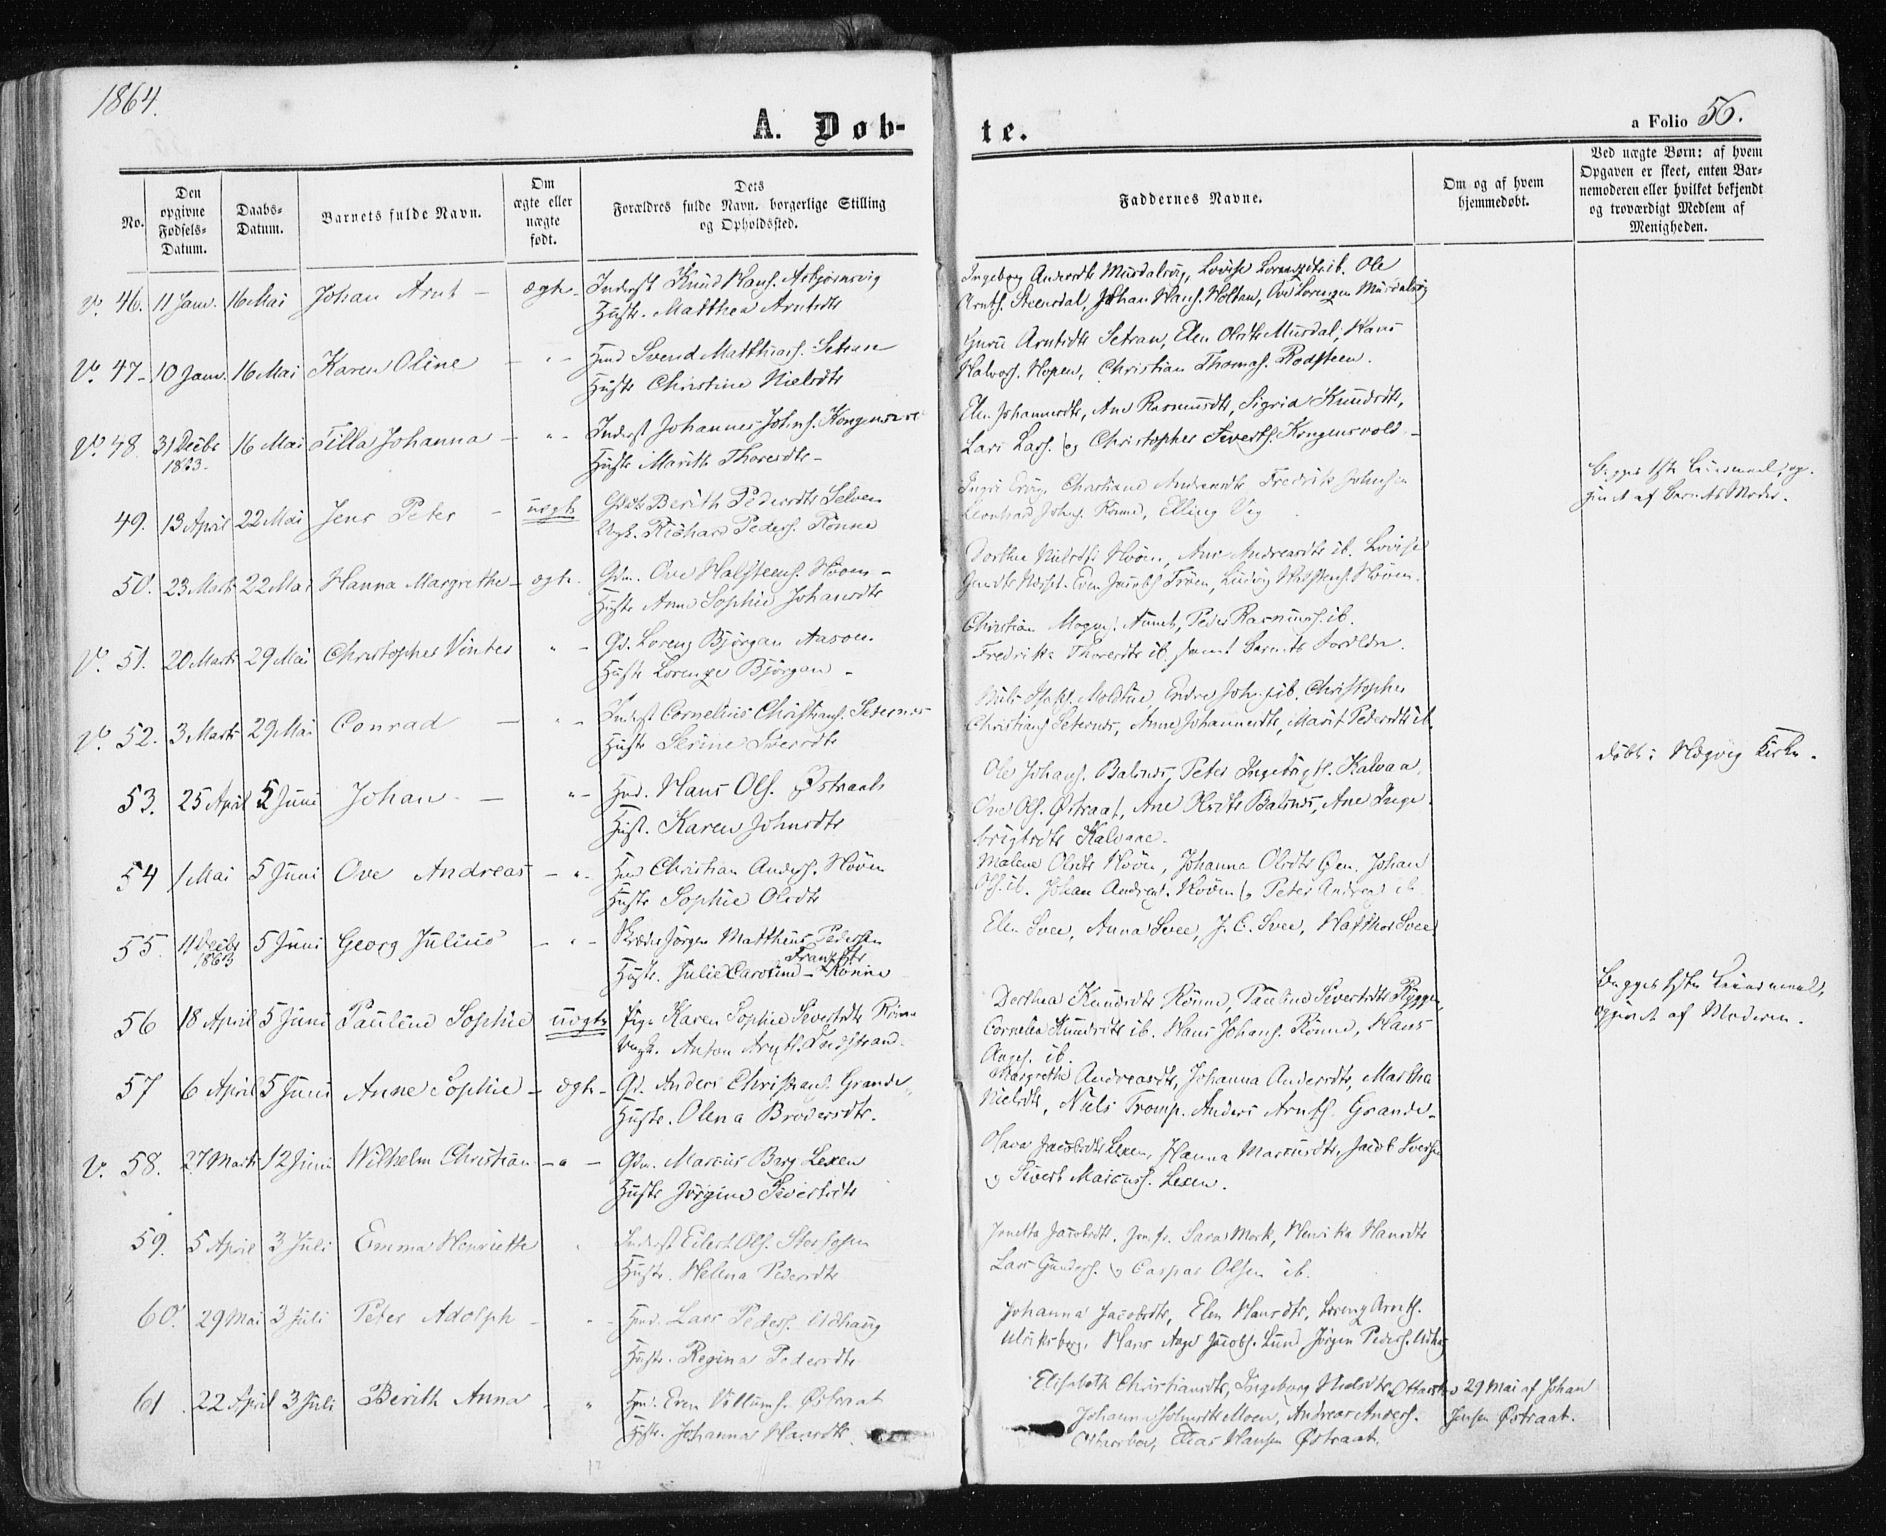 1864.
A. Døb-
te.
a Folio 56.
No.
Den opgivne Fødsels-Datum.
Daabs-Datum.
Barnets fulde Navn.
Om ægte eller uægte født.
Dets Forældres fulde Navn, borgerlige Stilling og Opholdssted.
Faddernes Navne.
Om og af hvem hjemmedøbt.
Ved uægte Børn: af hvem Opgaven er skeet, enten Barnemoderen eller hvilket bekjendt og troværdigt Medlem af Menigheden.
V. 46. 11 Janv. 16 Mai Johan Arnt - ægte - Inderst Knud Hans. Asbjørnsvig
Hustr. Matthea Arntsdtr
Ingeborg Andersdtr Musdalsvig, Lovise Lorentzdtr ib. Ole
Arnts. Steensdal, Johan Hans. Holtan, Ove Lorenzen Musdalsvig
V. 47 - 10 Janv. 16 Mai Karen Oline - " - Hmd Svend Matthias. Setran
Hustr Christine Nielsdtr
Guru Arntsdtr Setran, Elen Olsdtr Musdal, Hans
Halvors. Hopen, Christian Thomas. Rødsteen.
V. 48 31 Decbr 1863. 16 Mai Tilla Johanna - " - Inderst Johannes Johns. Kongensvold
Hustr Marith Thoresdtr -
Elen Johannesdtr, Ane Rasmusdtr, Sigrid Knudsdtr,
Lars Lars. og Christopher Siverts. Kongensvold -
49. 13 April 22 Mai Jens Peter - uægte Gdds Berith Pedersdtr Selven
Ungk. Richard Peders. Rønne
Christiane Andreasdtr Fredrik Johnsen
Leonhard Johns. Rønne, Elling Vig
begges 1ste Leiermaal, op-
givet af Barnets Moder.
50. 23 Marts 22 Mai Hanna Margrethe - ægte. Gdm. Ove Halsteens. Hoven -
Hustr Anne Sophie Johansdtr
Dorthea Nielsdtr Hoven, Ane Andreasdtr ib. Lovise
Even Jacobs. Troen, Ludvig Halsteens. Hoven.
V. 51. 20 Marts 29 Mai Christopher Vinter " - Gd. Lorenz Bjørgan Aasen.
Hustr Lorenze Bjørgan -
Christian Mogens. Peder Rasmuss. ib.
Fredrikke Thoresdtr ib. samt Barnets Forældre.
V. 52. 3 Marts 29 Mai Conrad - " - Inderst Cornelius Christians. Seternes
Hustr Serine Iversdtr
Endre Joh. ib. Christopher
Christians. Seternes, Anne Johannesdtr, Marit Pedersdtr ib.
53. 25 April 5 Juni Johan - " - Hmd. Hans Ols. Østraat
Hust. Karen Johnsdtr
Ole Johans. Balsnes, Peter Ingebrigts. Kalvaa,
Ove Ols. Østraat, Ane Olsdtr Balsnes, Ane Inge-
brigtsdtr Kalvaae.
døbt i Høgvig Kirke.
54 1 Mai 5 Juni Ove Andreas - " - Hmd Christian Anders. Hoven
Hustr Sophie Olsdtr
Malene Olsdtr Hoven, Johanna Olsdtr Øen, Johan
Ols. ib. Johan Andreas. Hoven og Peter Andreas. ib.
55. 11 Decbr 1863 5 Juni Georg Julius - " - Skræder Jørgen Mattheus Pedersen
Hustr. Julie Caroline Frantzdtr - Rønne
Elen Svee, Anna Svee, J. C. Svee, Hatthor Svee
56 18 April 5 Juni Pauline Sophie uægte Pige Karen Sophie Sivertsdtr Rønne
Ungk. Anton Arnts. Indstrand.
Dorthea Knudsdtr Rønne, Pauline Sivertsdtr Rygge,
Cornelia Knudsdtr ib. Hans Johans. Rønne, Hans
Aages. ib.
begges 1ste Leiermaal,
opgivet af Moderen.
57 6 April 5 Juni Anne Sophie - ægte - Gd. Anders Christians. Grande,
Hustr. Olena Brodersdtr.
Margrethe Andreasdtr, Johanna Andersdtr, Martha
Nielsdtr, Niels Tromp. Anders Arnts. Grande -
V. 58. 27 Marts 12 Juni Wilhelm Christian - " - Gdm. Marcus Berg Lexen
Hustr Jørgine Sivertsdtr
Olava Jacobsdtr Lexen, Hanna Marcusdtr, Jacob Iversen
og Sivert Marcus. Lexen.
59. 5 April 3 Juli Emma Henriette " Inderst Eilert Ols. Storfosen
Hustr. Helena Pedersdtr
Jonetta Jacobsdtr. Jomfr. Sara Mork, Henrika Hansdtr
Lars Gunders. og Caspar Olsen ib.
60. 29 Mai 3 Juli Peter Adolph - " - Hmd. Lars Peders. Udhaug
Hustr. Regina Pedersdtr
Johanna Jacobsdtr, Elen Hansdtr, Lorenz Arnts.
Ulriksborg, Hans Aage Jacobs. Lund Jørgen Peders. Udhaug
61 22 April 3 Juli Berith Anna - " Hmd. Even Villums. Østraat
Hustr. Johanna Hansdtr
Elisabeth Christiansdtr, Ingeborg Nielsdtr Ottersbo
Johanna Johnsdtr Moen, Andreas Anders.
Ottersboe, Elias Hansen Østraat.
29 Mai af Johan
Jensen Østraat.